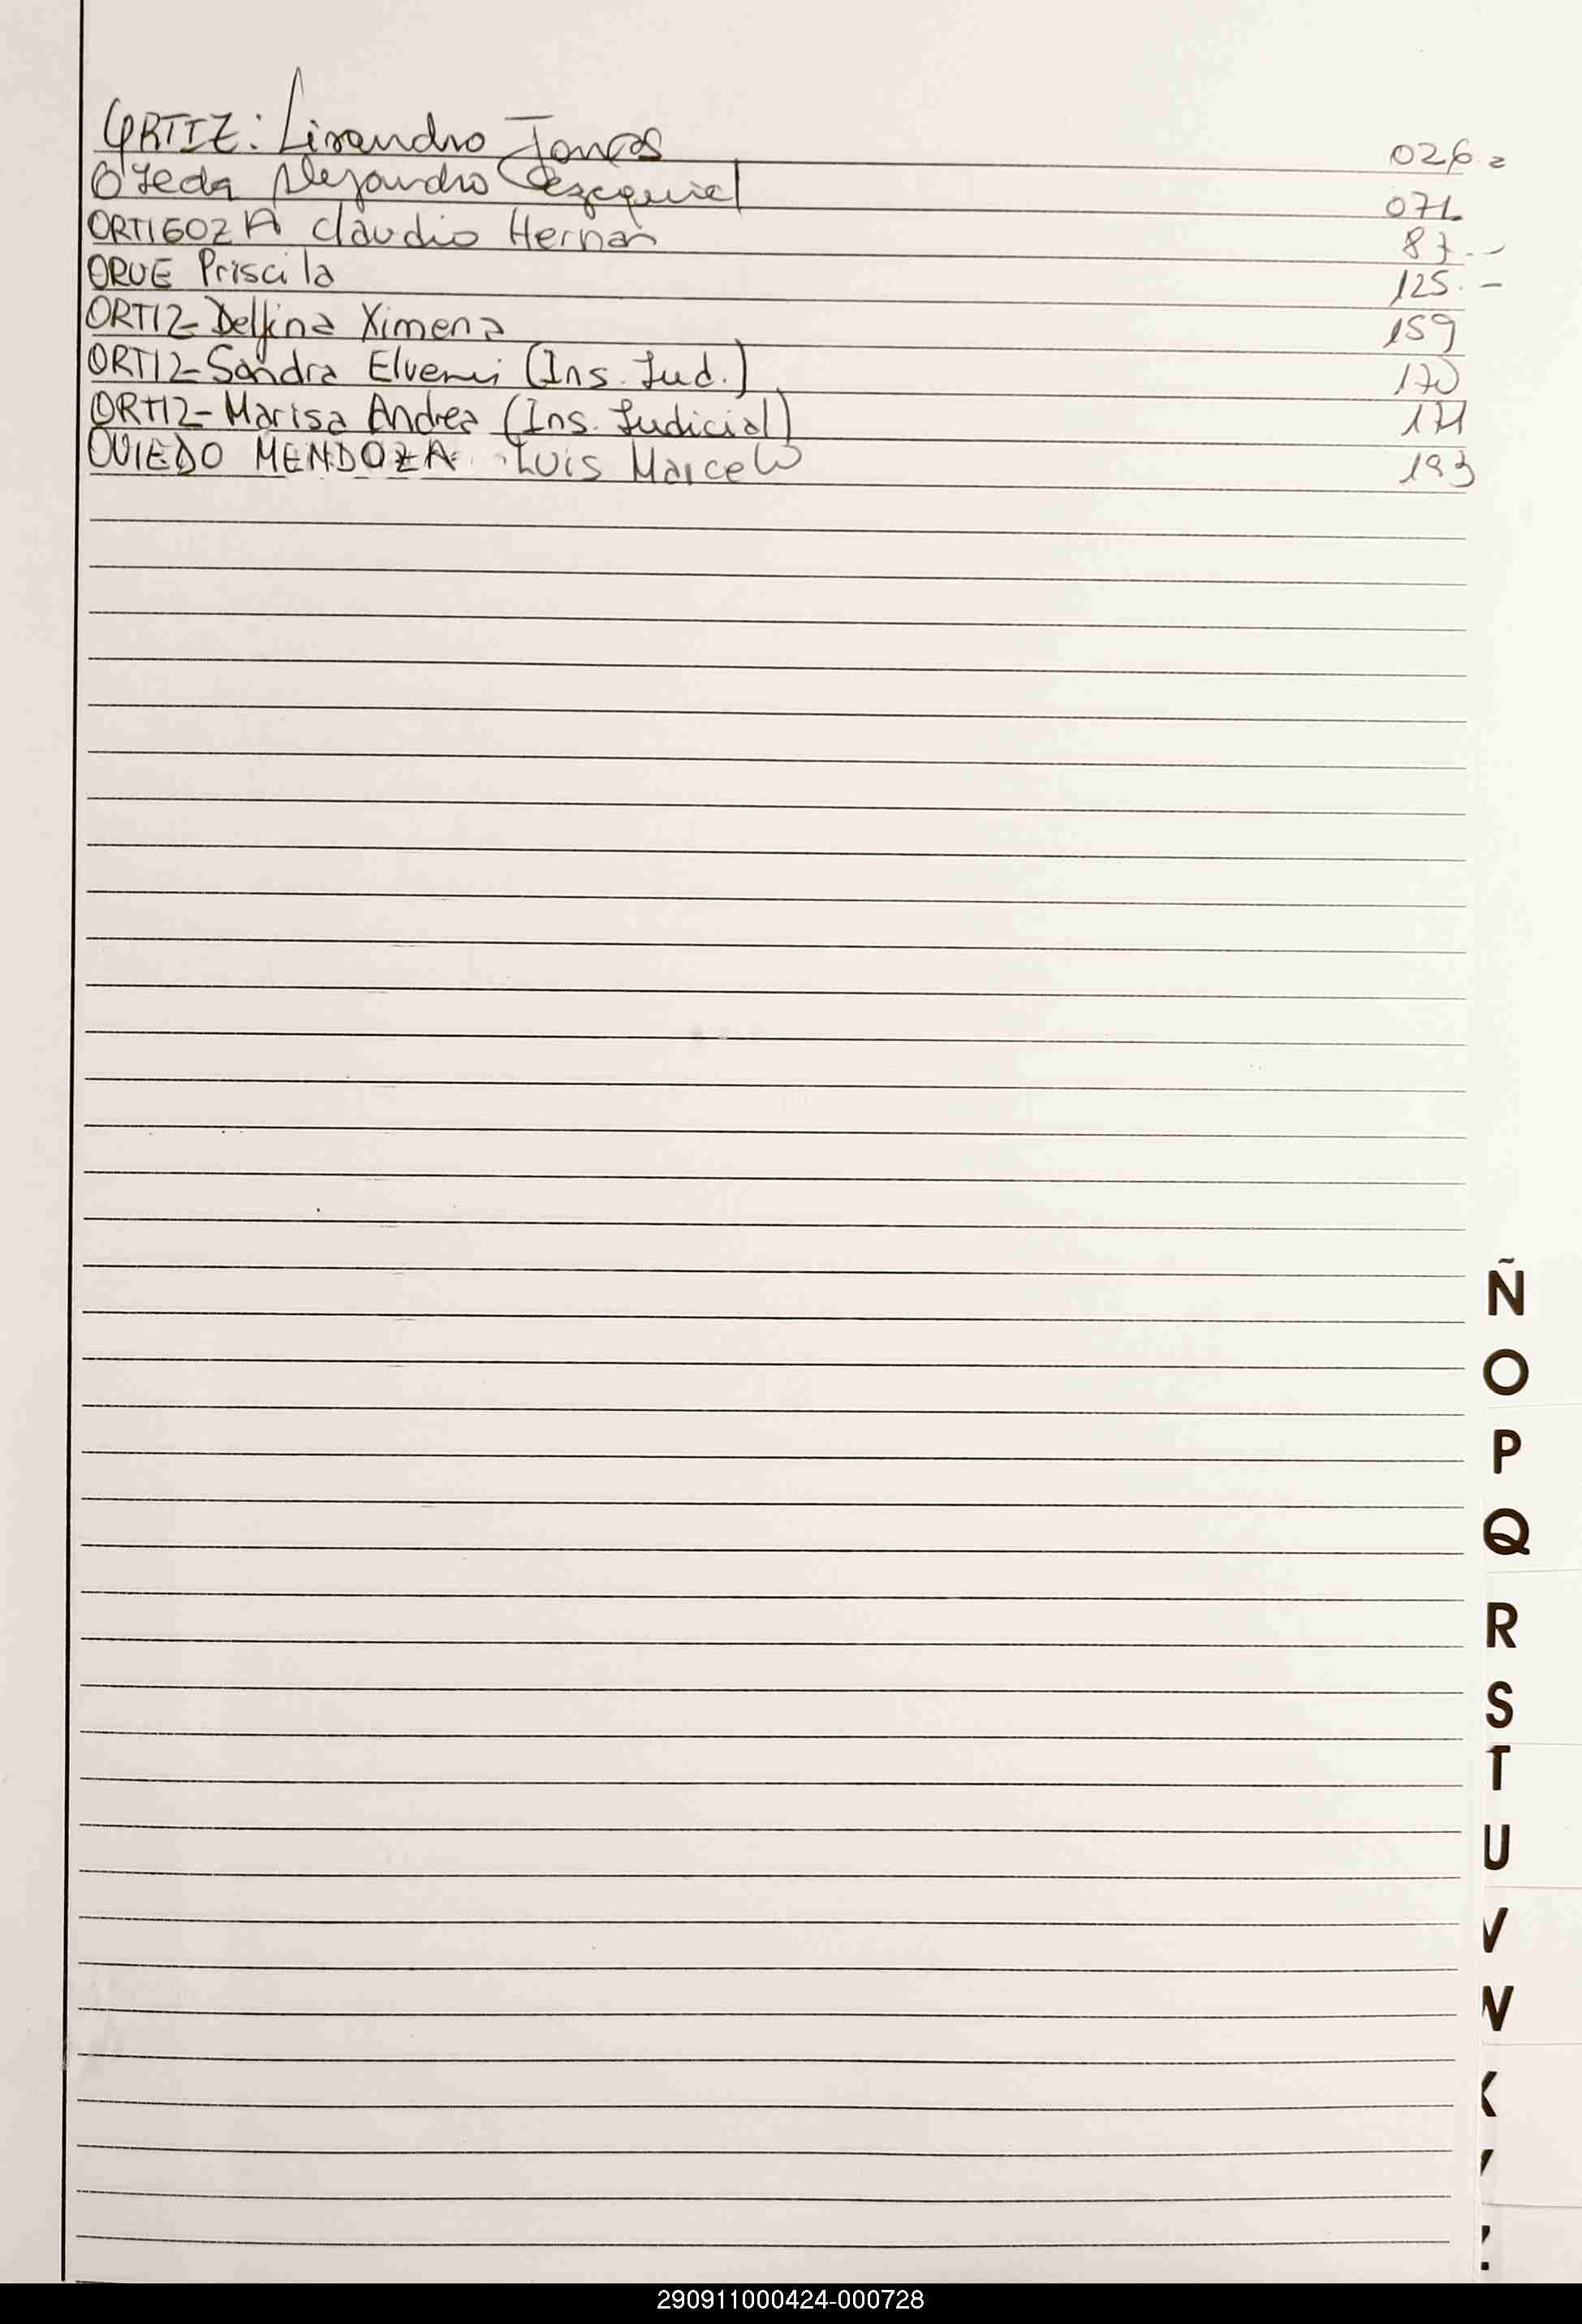 ORTIZ: Lisandro Jonas 026.=
OJeda Alejandro Ezequiel 071.
ORTIGOZA Claudio Hernan 87.-
ORUE Priscila 125.-
ORTIZ-Delfina Ximena 159
ORTIZ-Sandra Elvemi (Ins. Jud.) 170
ORTIZ-Marisa Andrea (Ins. Judicial) 171
OVIEDO MENDOZA Luis Marcelo 193
Ñ
O
P
Q
R
S
T
U
V
W
X
Y
Z
290911000424-000728